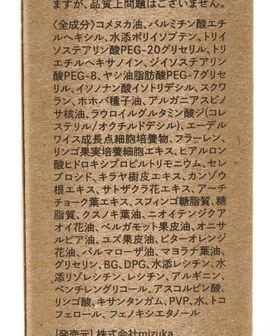 ますが、品質上問題はございません。
〈全成分〉コメヌカ油、パルミチン酸エチ
ルヘキシル、水添ポリイソブテン、トリイ
ソステアリン酸PEG-20グリセリル、トリ
エチルヘキサノイン、ジイソステアリン
酸PEG-8、ヤシ油脂肪酸PEG-7グリセ
リル、イソノナン酸イソトリデシル、スク
ワラン、ホホバ種子油、アルガニアスピノ
サ核油、ラウロイルグルタミン酸ジ(コレ
ステリル/オクチルドデシル)、エーデルワ
イス成長点細胞培養物、フラーレン、
リンゴ果実培養細胞エキス、ヒアルロン
酸ヒドロキシプロピルトリモニウム、セレ
ブロシド、キラヤ樹皮エキス、カンゾウ
根エキス、サトザクラ花エキス、アーチ
チョーク葉エキス、スフィンゴ糖脂質、
糖脂質、クスノキ葉油、ニオイテンジクア
オイ花油、ベルガモット果皮油、オニサ
ルビア油、ユズ果皮油、ビターオレンジ
花油、パルマローザ油、マヨラナ葉油、
グリセリン、BG、DPG、水添レシチン、水
添リゾレシチン、レシチン、アルギニン、
ペンチレングリコール、アスコルビン酸、
リンゴ酸、キサンタンガム、PVP、水、ト
コフェロール、フェノキシエタノール
[発売元] 株式会社mizuka